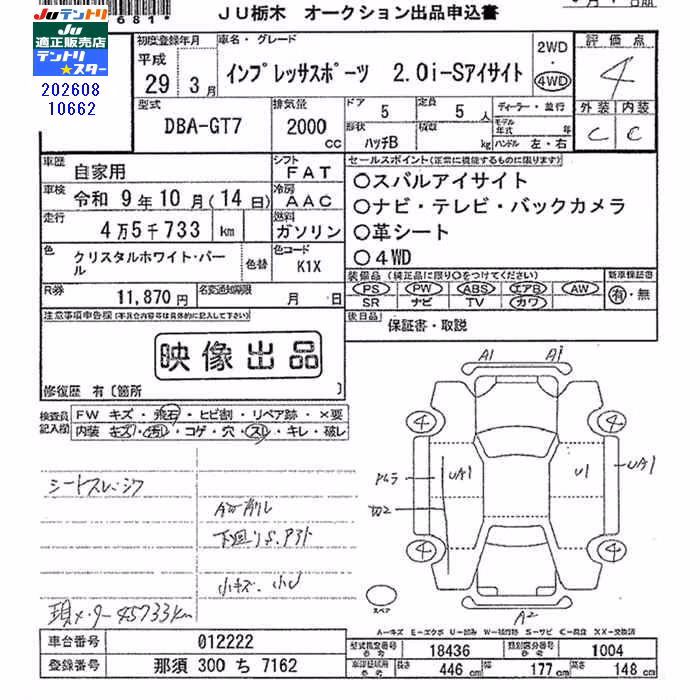 JU テントリ
JU
適正販売店
テントリ
☆スター
202608
10662
681
JU栃木 オークション出品申込書
初度登録年月
平成
29年3月
車名・グレード
インプレッサスポーツ 2.0i-Sアイサイト
2WD
・
4WD
評価点
4
外装 内装
C C
型式
DBA-GT7
排気量
2000
cc
ドア 5
定員 5人
形状 ハッチB
積数 kg
ディーラー・並行
モデル年式 年
ハンドル 左・右
車歴 自家用
シフト FAT
車検 令和 9年10月(14日)
冷房 AAC
走行 4万5千733 km
燃料 ガソリン
色 クリスタルホワイト・パール
色替
色コード K1X
R券 11,870円
名変通知期限 月 日
セールスポイント(正常に機能するものに限ります)
○スバルアイサイト
○ナビ・テレビ・バックカメラ
○革シート
○4WD
装備品(純正品に限り○をつけてください)
PS PW ABS エアB AW
SR ナビ TV カワ
新車保証書
有・無
後日品 保証書・取説
注意事項申告欄(不具合内容等は具体的に記入して下さい)
映像出品
修復歴 有〔箇所 〕
検査員記入欄
FW キズ・飛石・ヒビ割・リペア跡・×要
内装 キズ・汚レ・コゲ・穴・スレ・キレ・破レ
シートスレ・シワ
下廻りS.アト
小キズ・小U
現メーター45733km
A1 A1
4 4
UA1 U1 UA1
4 4
A2
スペア
A-キズ E-エクボ U-凹み W-補修跡 S-サビ C-腐食 XX-交換済
車台番号 012222
登録番号 那須 300 ち 7162
型式指定番号 18436
類別区分番号 1004
長さ 446 cm 幅 177 cm 高さ 148 cm